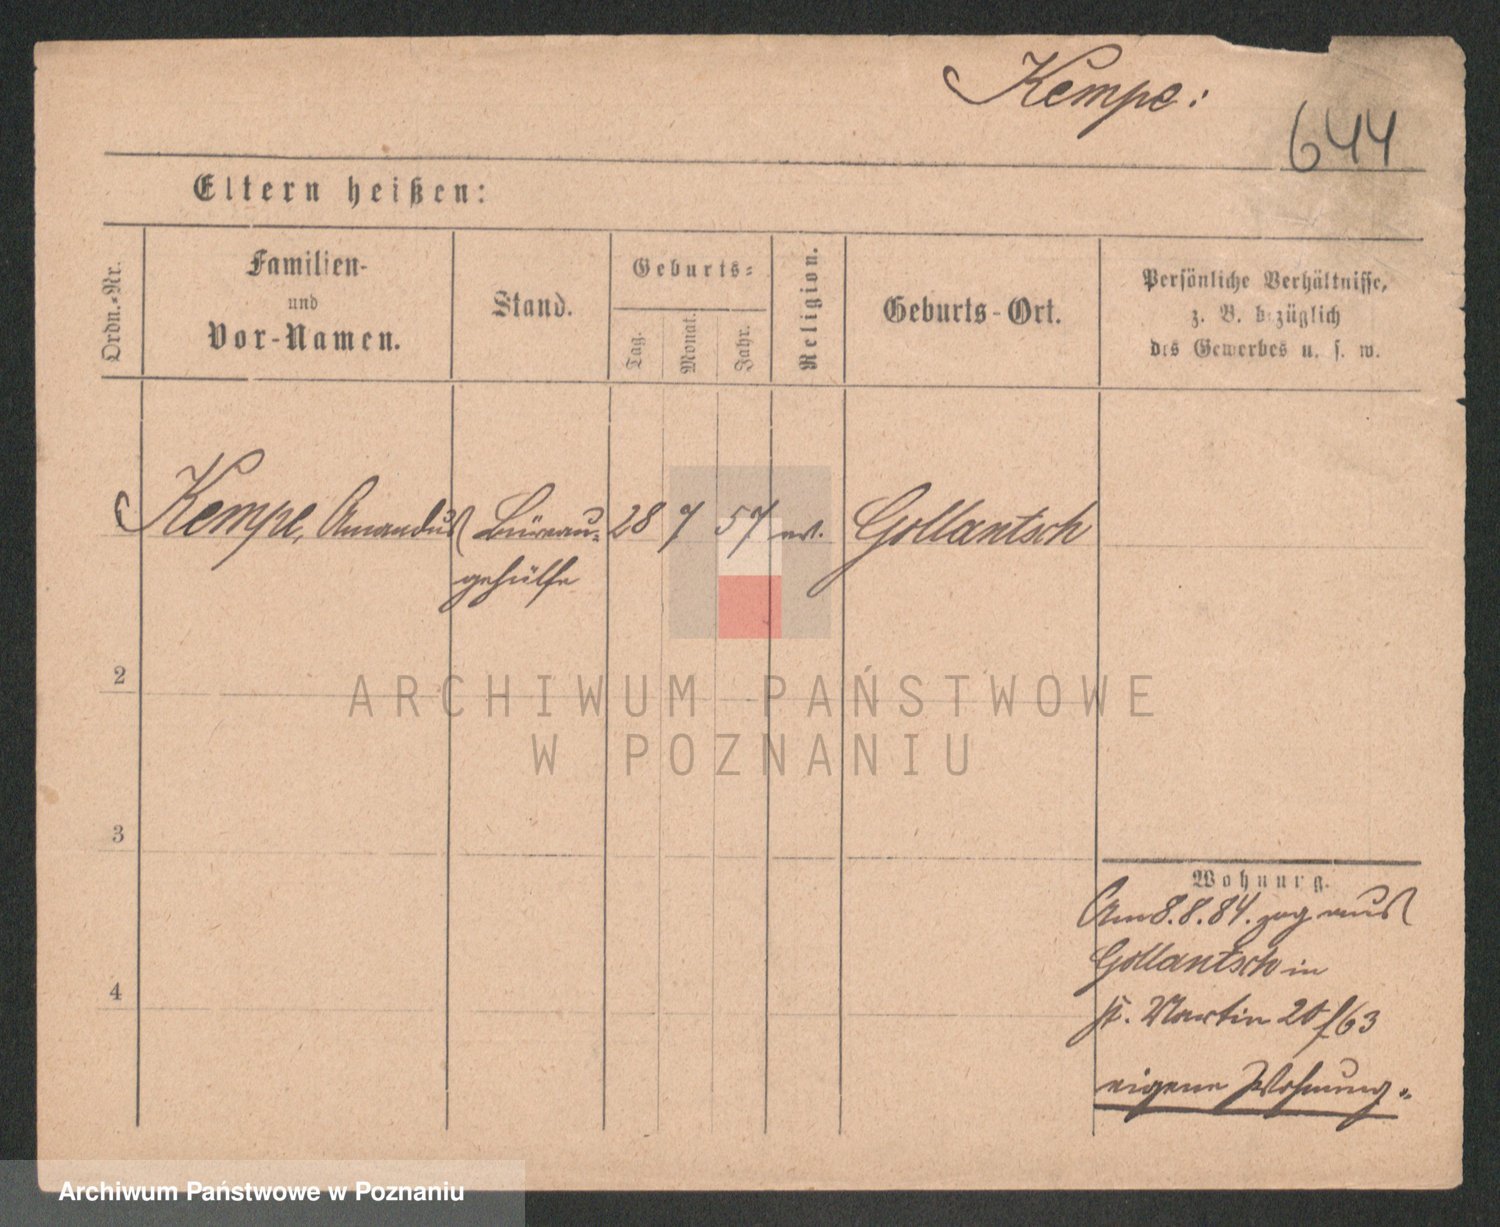 Kempe:
644
Eltern heißen:
Ordn.-Nr.
Familien-
und
Vor-Namen.
Stand.
Geburts-
Tag.
Monat.
Jahr.
Religion.
Geburts-Ort.
Persönliche Verhältnisse,
z. B. bezüglich
des Gewerbes u. s. w.
Kempe, Amandus Büreau- 28 7 57 ev. Gollantsch
gehülfe
2
ARCHIWUM PAŃSTWOWE
W POZNANIU
3
Wohnung.
Am 8.8.84. zog aus
Gollantsch in
St. Martin 20 f63
4
eigene Wohnung.
Archiwum Państwowe w Poznaniu